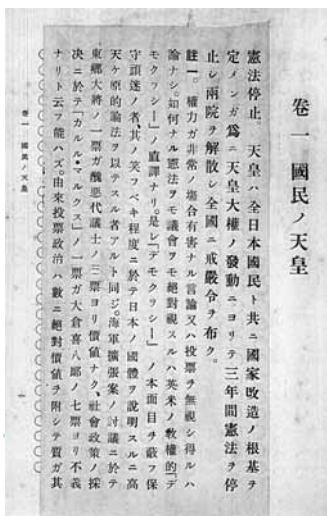 卷一 國民ノ天皇
憲法停止。天皇ハ全日本國民ト共ニ國家改造ノ根基ヲ
定メンガ爲ニ天皇大權ノ發動ニヨリテ三年間憲法ヲ停
止シ兩院ヲ解散シ全國ニ戒嚴令ヲ布ク。
註一。權力ガ非常ノ塲合有害ナル言論又ハ投票ヲ無視シ得ルハ
論ナシ。如何ナル憲法ヲモ議會ヲモ絕對視スルハ英米ノ敎權的「デ
モクラシー」ノ直譯ナリ。是レ「デモクラシー」ノ本面目ヲ蔽フ保
守頑迷ノ者其ノ笑フベキ程度ニ於テ日本ノ國體ヲ說明スルニ高
天ケ原的論法ヲ以テスル者アルト同ジ。海軍擴張案ノ討議ニ於テ
東鄕大將ノ一票ガ醜惡代議士ノ三票ヨリ價値ナク、社會政策ノ採
決ニ於テ「カル・マルクス」ノ一票ガ大倉喜八郎ノ七票ヨリ不義
ナリト云フ能ハズ。由來投票政治ハ數ニ絕對價値ヲ附シテ質ガ其
卷一 國民ノ天皇